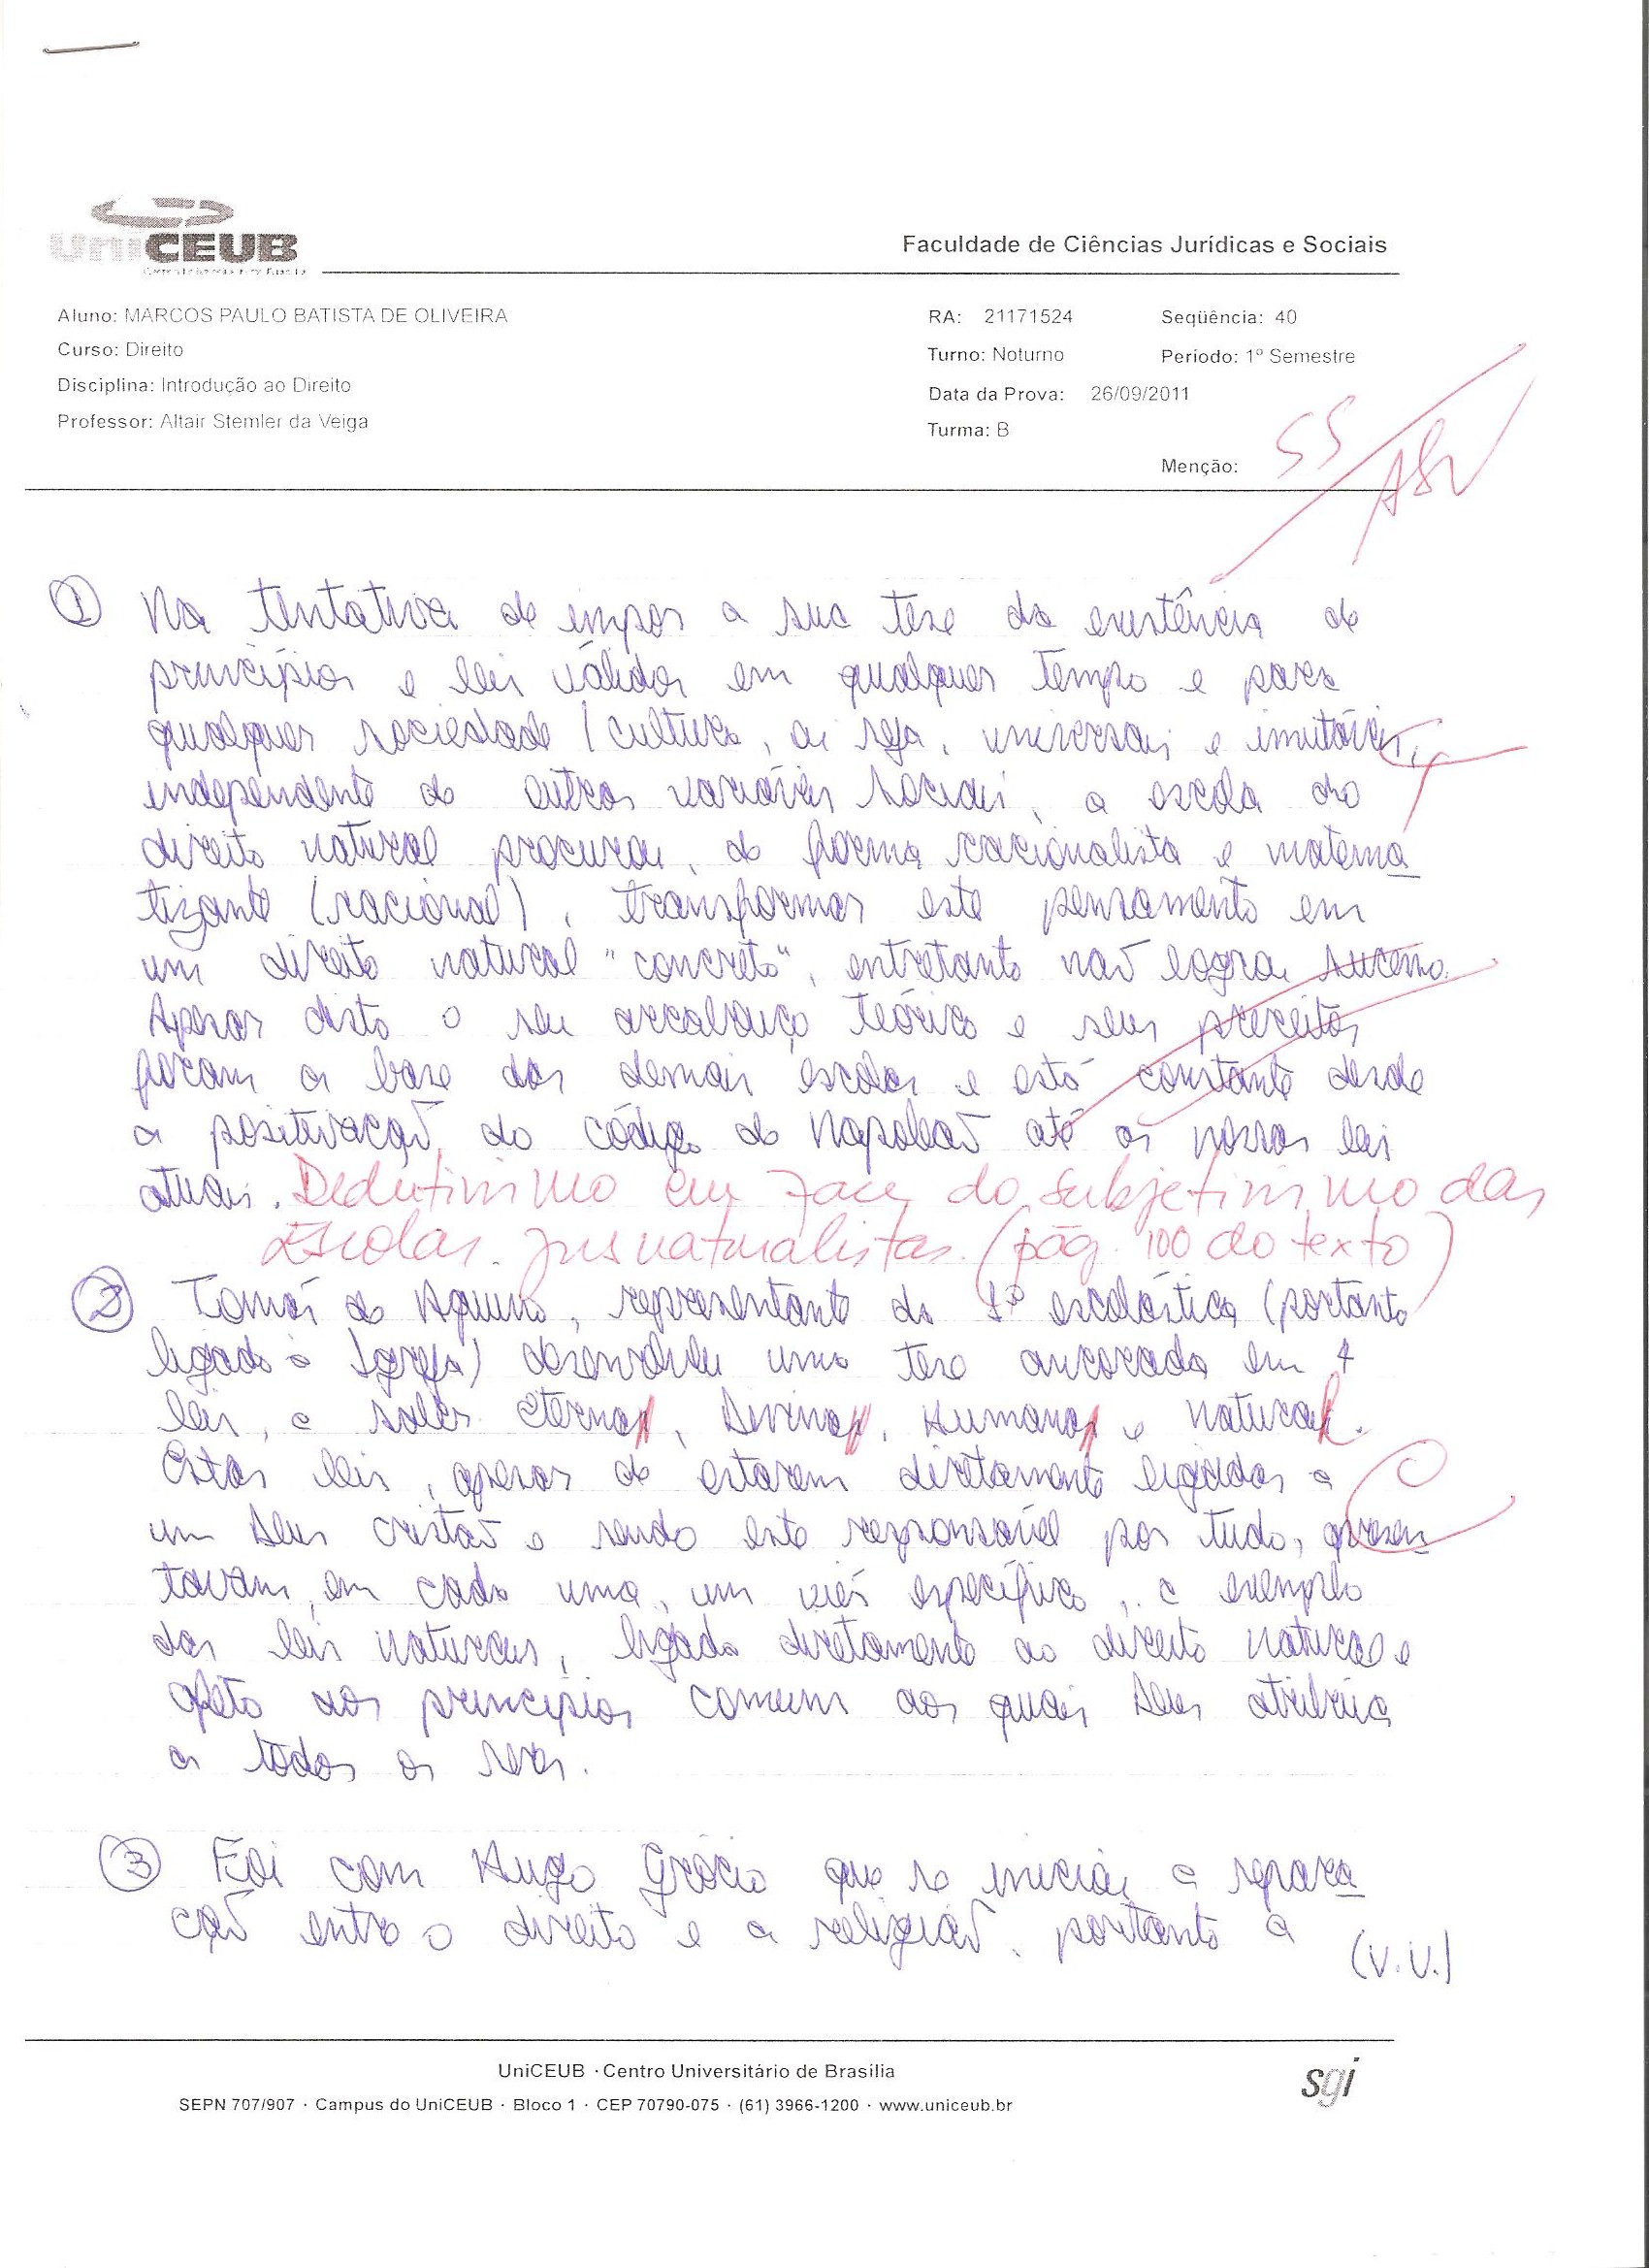 UniCEUB
Faculdade de Ciências Jurídicas e Sociais
Aluno: MARCOS PAULO BATISTA DE OLIVEIRA
RA: 21171524
Seqüência: 40
Curso: Direito
Turno: Noturno
Período: 1º Semestre
Disciplina: Introdução ao Direito
Data da Prova: 26/09/2011
Professor: Altair Stemler da Veiga
Turma: B
Menção: SS
① Na tentativa de impor a sua tese da existência de
princípios e leis válidos em qualquer tempo e para
qualquer sociedade / cultura, ou seja, universais e imutáveis,
independente de outras variáveis sociais, a escola do
direito natural procurou, de forma racionalista e matema
tizante (racional), transformar este pensamento em
um direito natural "concreto", entretanto não logrou sucesso.
Apesar disto o seu arcabouço teórico e seus preceitos
foram a base das demais escolas e está constante desde
a positivação do código de Napoleão até as nossas leis
atuais. Dedutivismo em face do subjetivismo das
Escolas Jusnaturalistas. (pág. 100 do texto)
② Tomás de Aquino, representante da 1ª escolástica (portanto
ligado à Igreja) desenvolveu uma tese ancorada em 4
leis, a saber: eterna, Divina, Humana e natural.
Estas leis, apesar de estarem diretamente ligadas a
um Deus cristão e sendo este responsável por tudo, apresen
tavam, em cada uma, um viés específico, a exemplo
das leis naturais, ligada diretamente ao direito natural e
afeto aos princípios comuns aos quais Deus atribuia
a todos os seres.
③ Foi com Hugo Grócio que se iniciou a separa
ção entre o direito e a religião, portanto a
(V.V.)
UniCEUB · Centro Universitário de Brasília
SEPN 707/907 · Campus do UniCEUB · Bloco 1 · CEP 70790-075 · (61) 3966-1200 · www.uniceub.br
sgi